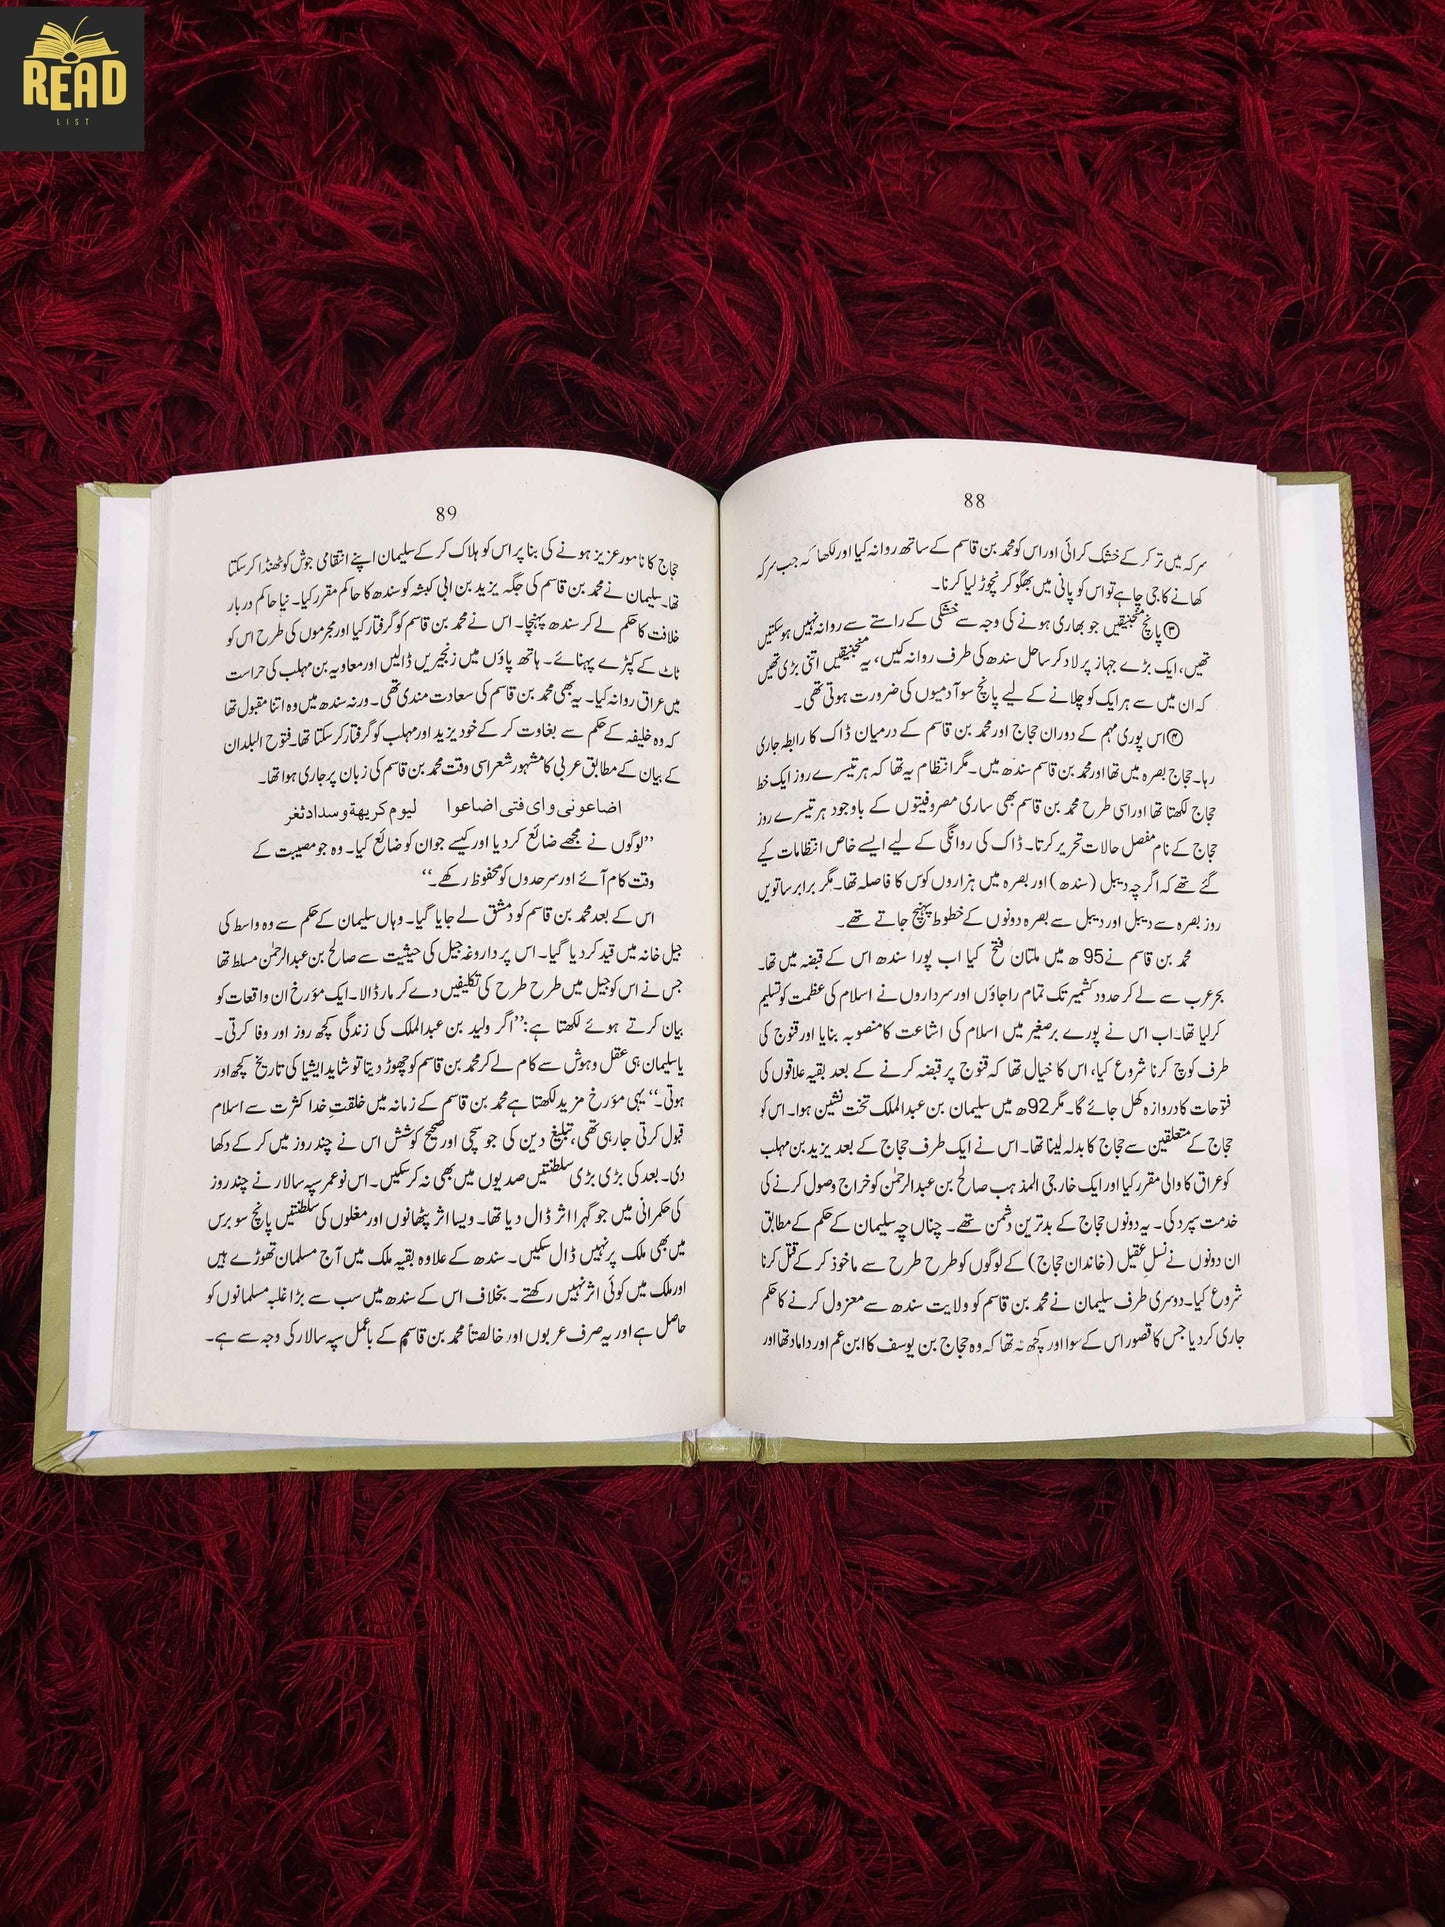 READ
LIST
88
سرکہ میں تر کر کے خشک کرائی اور اس کو محمد بن قاسم کے ساتھ روانہ کیا اور لکھا کہ جب سرکہ
کھانے کا جی چاہے تو اس کو پانی میں بھگو کر نچوڑ لیا کرنا۔
③ پانچ منجنیقیں جو بھاری ہونے کی وجہ سے خشکی کے راستے سے روانہ نہیں ہو سکتیں
تھیں، ایک بڑے جہاز پر لاد کر ساحل سندھ کی طرف روانہ کیں، یہ منجنیقیں اتنی بڑی تھیں
کہ ان میں سے ہر ایک کو چلانے کے لیے پانچ سو آدمیوں کی ضرورت ہوتی تھی۔
④ اس پوری مہم کے دوران حجاج اور محمد بن قاسم کے درمیان ڈاک کا رابطہ جاری
رہا۔ حجاج بصرہ میں تھا اور محمد بن قاسم سندھ میں۔ مگر انتظام یہ تھا کہ ہر تیسرے روز ایک خط
حجاج لکھتا تھا اور اسی طرح محمد بن قاسم بھی ساری مصروفیتوں کے باوجود ہر تیسرے روز
حجاج کے نام مفصل حالات تحریر کرتا۔ ڈاک کی روانگی کے لیے ایسے خاص انتظامات کیے
گئے تھے کہ اگرچہ دیبل (سندھ) اور بصرہ میں ہزاروں کوس کا فاصلہ تھا۔ مگر برابر ساتویں
روز بصرہ سے دیبل اور دیبل سے بصرہ دونوں کے خطوط پہنچ جاتے تھے۔
محمد بن قاسم نے 95 ھ میں ملتان فتح کیا اب پورا سندھ اس کے قبضہ میں تھا۔
بحر عرب سے لے کر حدود کشمیر تک تمام راجاؤں اور سرداروں نے اسلام کی عظمت کو تسلیم
کر لیا تھا۔ اب اس نے پورے برصغیر میں اسلام کی اشاعت کا منصوبہ بنایا اور قنوج کی
طرف کوچ کرنا شروع کیا، اس کا خیال تھا کہ قنوج پر قبضہ کرنے کے بعد بقیہ علاقوں کی
فتوحات کا دروازہ کھل جائے گا۔ مگر 92ھ میں سلیمان بن عبدالملک تخت نشین ہوا۔ اس کو
حجاج کے متعلقین سے حجاج کا بدلہ لینا تھا۔ اس نے ایک طرف حجاج کے بعد یزید بن مہلب
کو عراق کا والی مقرر کیا اور ایک خارجی المذہب صالح بن عبدالرحمٰن کو خراج وصول کرنے کی
خدمت سپرد کی۔ یہ دونوں حجاج کے بدترین دشمن تھے۔ چناں چہ سلیمان کے حکم کے مطابق
ان دونوں نے نسلِ عقیل (خاندان حجاج) کے لوگوں کو طرح طرح سے ماخوذ کر کے قتل کرنا
شروع کیا۔ دوسری طرف سلیمان نے محمد بن قاسم کو ولایت سندھ سے معزول کرنے کا حکم
جاری کر دیا جس کا قصور اس کے سوا اور کچھ نہ تھا کہ وہ حجاج بن یوسف کا ابن عم اور داماد تھا اور
89
حجاج کا نامور عزیز ہونے کی بنا پر اس کو ہلاک کر کے سلیمان اپنے انتقامی جوش کو ٹھنڈا کر سکتا
تھا۔ سلیمان نے محمد بن قاسم کی جگہ یزید بن ابی کبشہ کو سندھ کا حاکم مقرر کیا۔ نیا حاکم دربار
خلافت کا حکم لے کر سندھ پہنچا۔ اس نے محمد بن قاسم کو گرفتار کیا اور مجرموں کی طرح اس کو
ٹاٹ کے کپڑے پہنائے۔ ہاتھ پاؤں میں زنجیریں ڈالیں اور معاویہ بن مہلب کی حراست
میں عراق روانہ کیا۔ یہ بھی محمد بن قاسم کی سعادت مندی تھی۔ ورنہ سندھ میں وہ اتنا مقبول تھا
کہ وہ خلیفہ کے حکم سے بغاوت کر کے خود یزید اور مہلب کو گرفتار کر سکتا تھا۔ فتوح البلدان
کے بیان کے مطابق عربی کا مشہور شعر اسی وقت محمد بن قاسم کی زبان پر جاری ہوا تھا۔
اضاعونی وای فتی اضاعوا لیوم کریھة وسداد ثغر
’’لوگوں نے مجھے ضائع کر دیا اور کیسے جوان کو ضائع کیا۔ وہ جو مصیبت کے
وقت کام آئے اور سرحدوں کو محفوظ رکھے۔‘‘
اس کے بعد محمد بن قاسم کو دمشق لے جایا گیا۔ وہاں سلیمان کے حکم سے وہ واسط کی
جیل خانہ میں قید کر دیا گیا۔ اس پر داروغہ جیل کی حیثیت سے صالح بن عبدالرحمٰن مسلط تھا
جس نے اس کو جیل میں طرح طرح کی تکلیفیں دے کر مار ڈالا۔ ایک مؤرخ ان واقعات کو
بیان کرتے ہوئے لکھتا ہے: ’’اگر ولید بن عبدالملک کی زندگی کچھ روز اور وفا کرتی۔
یا سلیمان ہی عقل و ہوش سے کام لے کر محمد بن قاسم کو چھوڑ دیتا تو شاید ایشیا کی تاریخ کچھ اور
ہوتی۔‘‘ یہی مؤرخ مزید لکھتا ہے محمد بن قاسم کے زمانہ میں خلقتِ خدا کثرت سے اسلام
قبول کرتی جا رہی تھی، تبلیغ دین کی جو سچی اور صحیح کوشش اس نے چند روز میں کر کے دکھا
دی۔ بعد کی بڑی بڑی سلطنتیں صدیوں میں بھی نہ کر سکیں۔ اس نو عمر سپہ سالار نے چند روز
کی حکمرانی میں جو گہرا اثر ڈال دیا تھا۔ ویسا اثر پٹھانوں اور مغلوں کی سلطنتیں پانچ سو برس
میں بھی ملک پر نہیں ڈال سکیں۔ سندھ کے علاوہ بقیہ ملک میں آج مسلمان تھوڑے ہیں
اور ملک میں کوئی اثر نہیں رکھتے۔ بخلاف اس کے سندھ میں سب سے بڑا غلبہ مسلمانوں کو
حاصل ہے اور یہ صرف عربوں اور خالصتاً محمد بن قاسم کے باعمل سپہ سالار کی وجہ سے ہے۔